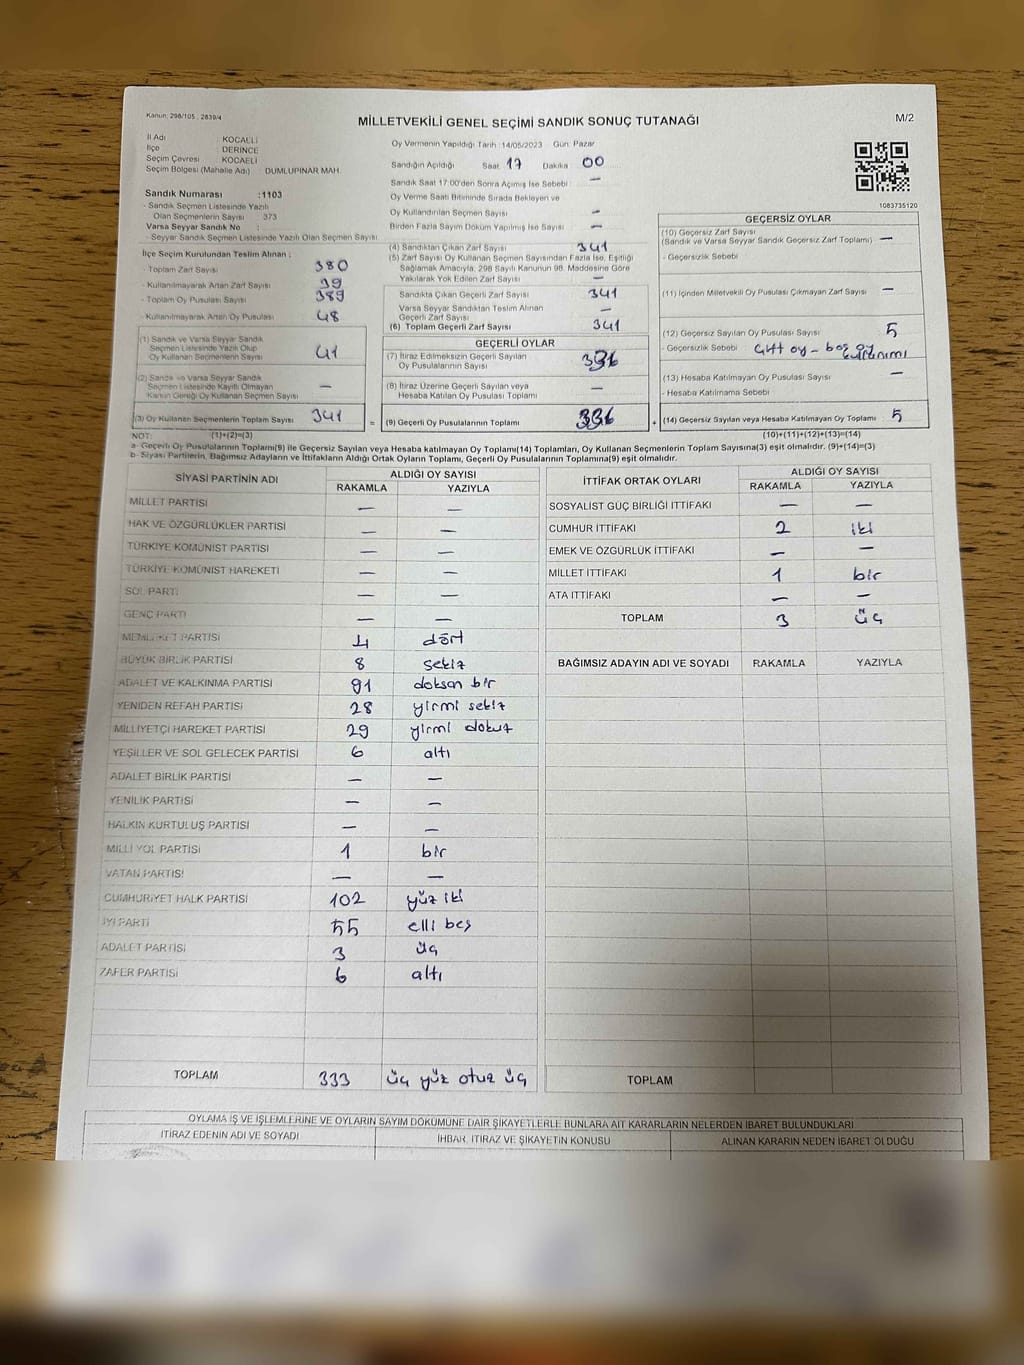 Kanun: 298/105 , 2839/4
MİLLETVEKİLİ GENEL SEÇİMİ SANDIK SONUÇ TUTANAĞI
M/2
İl Adı : KOCAELİ
İlçe : DERİNCE
Seçim Çevresi : KOCAELİ
Seçim Bölgesi (Mahalle Adı) DUMLUPINAR MAH.
Sandık Numarası :1103
- Sandık Seçmen Listesinde Yazılı
Olan Seçmenlerin Sayısı : 373
Varsa Seyyar Sandık No :
- Seyyar Sandık Seçmen Listesinde Yazılı Olan Seçmen Sayısı:
İlçe Seçim Kurulundan Teslim Alınan :
- Toplam Zarf Sayısı 380
- Kullanılmayarak Artan Zarf Sayısı 39
- Toplam Oy Pusulası Sayısı 389
- Kullanılmayarak Artan Oy Pusulası 48
(1) Sandık ve Varsa Seyyar Sandık
Seçmen Listesinde Yazılı Olup
Oy Kullanan Seçmenlerin Sayısı 41
(2) Sandık ve Varsa Seyyar Sandık
Seçmen Listesinde Kayıtlı Olmayan
Kanun Gereği Oy Kullanan Seçmen Sayısı —
(3) Oy Kullanan Seçmenlerin Toplam Sayısı 341
Oy Vermenin Yapıldığı Tarih :14/05/2023 Gün: Pazar
Sandığın Açıldığı Saat 17 Dakika 00
Sandık Saat 17:00'den Sonra Açılmış İse Sebebi : —
Oy Verme Saati Bitiminde Sırada Bekleyen ve
Oy Kullandırılan Seçmen Sayısı : —
Birden Fazla Sayım Döküm Yapılmış İse Sayısı : —
(4) Sandıktan Çıkan Zarf Sayısı 341
(5) Zarf Sayısı Oy Kullanan Seçmen Sayısından Fazla İse, Eşitliği
Sağlamak Amacıyla, 298 Sayılı Kanunun 98. Maddesine Göre
Yakılarak Yok Edilen Zarf Sayısı : —
Sandıkta Çıkan Geçerli Zarf Sayısı 341
Varsa Seyyar Sandıktan Teslim Alınan
Geçerli Zarf Sayısı —
(6) Toplam Geçerli Zarf Sayısı 341
GEÇERLİ OYLAR
(7) İtiraz Edilmeksizin Geçerli Sayılan
Oy Pusulalarının Sayısı: 336
(8) İtiraz Üzerine Geçerli Sayılan veya
Hesaba Katılan Oy Pusulası Toplamı —
= (9) Geçerli Oy Pusulalarının Toplamı 336
1083735120
GEÇERSİZ OYLAR
(10) Geçersiz Zarf Sayısı
(Sandık ve Varsa Seyyar Sandık Geçersiz Zarf Toplamı) —
- Geçersizlik Sebebi :
(11) İçinden Milletvekili Oy Pusulası Çıkmayan Zarf Sayısı —
(12) Geçersiz Sayılan Oy Pusulası Sayısı 5
- Geçersizlik Sebebi : Çift oy - boş oy
(13) Hesaba Katılmayan Oy Pusulası Sayısı —
- Hesaba Katılmama Sebebi :
+ (14) Geçersiz Sayılan veya Hesaba Katılmayan Oy Toplamı 5
NOT: (1)+(2)=(3) (10)+(11)+(12)+(13)=(14)
a- Geçerli Oy Pusulalarının Toplamı(9) ile Geçersiz Sayılan veya Hesaba katılmayan Oy Toplamı(14) Toplamları, Oy Kullanan Seçmenlerin Toplam Sayısına(3) eşit olmalıdır. (9)+(14)=(3)
b- Siyasi Partilerin, Bağımsız Adayların ve İttifakların Aldığı Ortak Oyların Toplamı, Geçerli Oy Pusulalarının Toplamına(9) eşit olmalıdır.
SİYASİ PARTİNİN ADI ALDIĞI OY SAYISI
RAKAMLA YAZIYLA
MİLLET PARTİSİ — —
HAK VE ÖZGÜRLÜKLER PARTİSİ — —
TÜRKİYE KOMÜNİST PARTİSİ — —
TÜRKİYE KOMÜNİST HAREKETİ — —
SOL PARTİ — —
GENÇ PARTİ — —
MEMLEKET PARTİSİ 4 dört
BÜYÜK BİRLİK PARTİSİ 8 sekiz
ADALET VE KALKINMA PARTİSİ 91 doksan bir
YENİDEN REFAH PARTİSİ 28 yirmi sekiz
MİLLİYETÇİ HAREKET PARTİSİ 29 yirmi dokuz
YEŞİLLER VE SOL GELECEK PARTİSİ 6 altı
ADALET BİRLİK PARTİSİ — —
YENİLİK PARTİSİ — —
HALKIN KURTULUŞ PARTİSİ — —
MİLLİ YOL PARTİSİ 1 bir
VATAN PARTİSİ — —
CUMHURİYET HALK PARTİSİ 102 yüz iki
İYİ PARTİ 55 elli beş
ADALET PARTİSİ 3 üç
ZAFER PARTİSİ 6 altı
TOPLAM 333 üç yüz otuz üç
İTTİFAK ORTAK OYLARI ALDIĞI OY SAYISI
RAKAMLA YAZIYLA
SOSYALİST GÜÇ BİRLİĞİ İTTİFAKI — —
CUMHUR İTTİFAKI 2 iki
EMEK VE ÖZGÜRLÜK İTTİFAKI — —
MİLLET İTTİFAKI 1 bir
ATA İTTİFAKI — —
TOPLAM 3 üç
BAĞIMSIZ ADAYIN ADI VE SOYADI RAKAMLA YAZIYLA
TOPLAM
OYLAMA İŞ VE İŞLEMLERİNE VE OYLARIN SAYIM DÖKÜMÜNE DAİR ŞİKAYETLERLE BUNLARA AİT KARARLARIN NELERDEN İBARET BULUNDUKLARI
İTİRAZ EDENİN ADI VE SOYADI İHBAR, İTİRAZ VE ŞİKAYETİN KONUSU ALINAN KARARIN NEDEN İBARET OLDUĞU